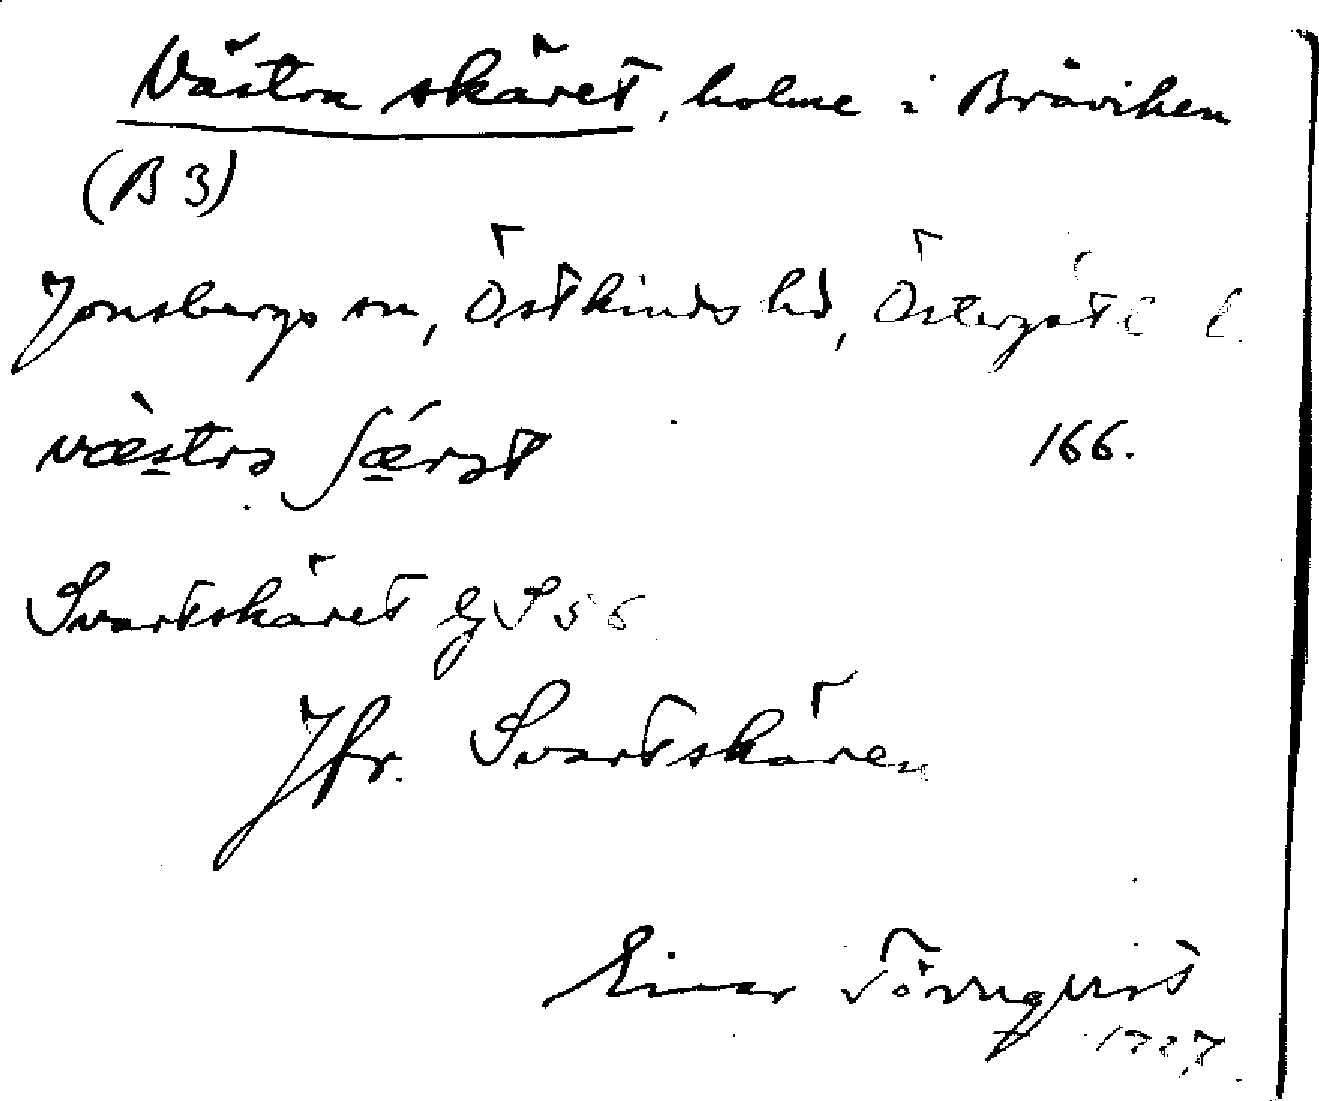 Västra skäret, holme i Bråviken
(B 3)
Jonsbergs sn, Östkinds hd, Östergötl l.
væ̀stra ʃǽrət 166.
Svartskäret GS 56
Jfr. Svartskären
Einar Törnqvist
1927.